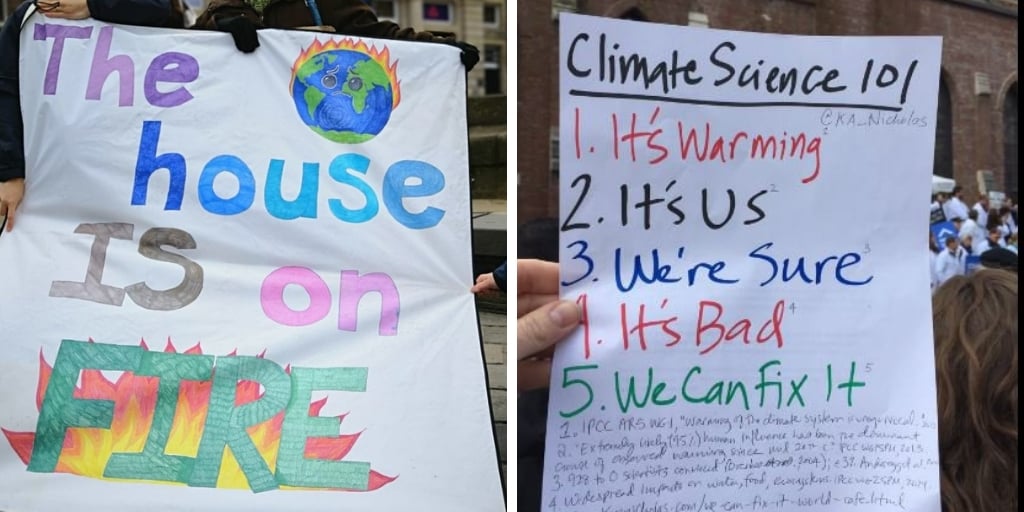 The
house
IS on
FIRE
Climate Science 101
@KA_Nicholas
1. It's Warming1
2. It's Us2
3. We're Sure3
4. It's Bad4
5. We Can Fix It5
1. IPCC AR5 WG1, "Warming of the climate system is unequivocal."
2. "Extremely likely (95%) human influence has been the dominant
cause of observed warming since mid 20th C" IPCC WG1 SPM, 2013
3. 928 to 0 scientists convinced
4. Widespread impacts on water, food, ecosystems IPCC WG2 SPM, 2014.
.com/we-can-fix-it-world-cafe.html